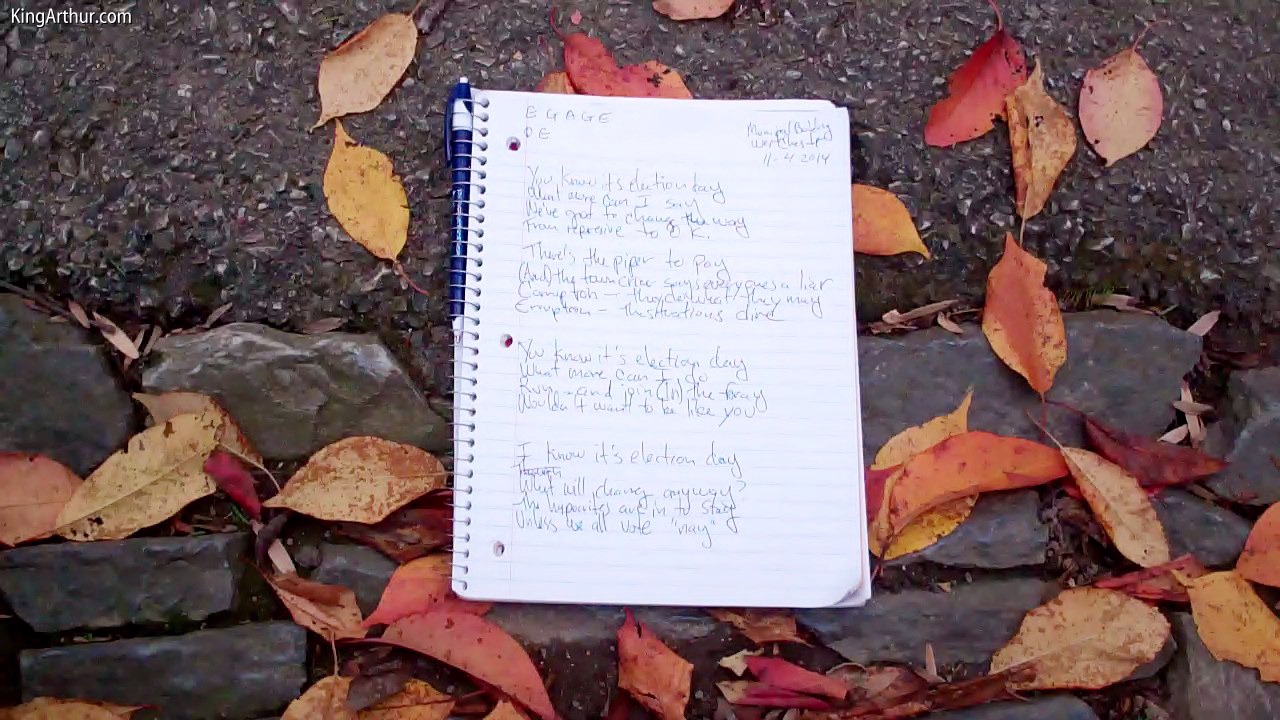 KingArthur.com
E G A G E
D E
Municipal Building
West Chester
11-4 2014
You know it's election day
What more can I say
We've got to change the way
From repressive to O K.
There's the piper to pay
(And) the town crier says everyone's a liar
Corruption – they do what they may
Erruption – the situations dire
You know it's election day
What more can I do
Run and join (in) the foray
Wouldn't want to be like you
I know it's election day
Though
What will change anyway?
The are in to stay
Unless we all vote "nay"